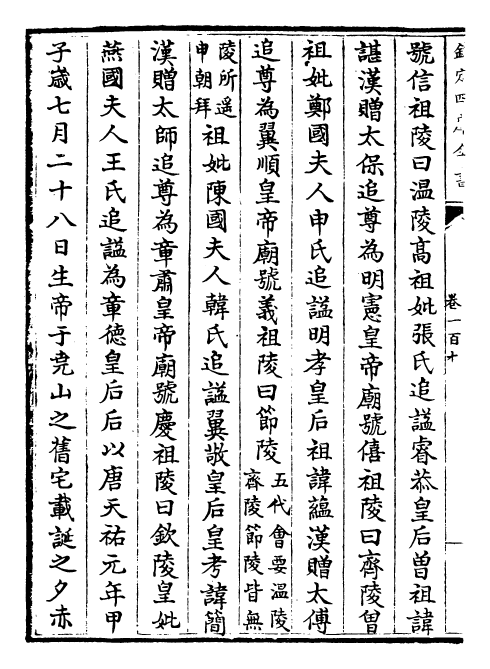 欽定四庫全書
卷一百十
號信祖陵曰温陵髙祖妣張氏追諡睿恭皇后曾祖諱
諶漢贈太保追尊為明憲皇帝廟號僖祖陵曰齊陵曾
祖妣鄭國夫人申氏追諡明孝皇后祖諱藴漢贈太傅
追尊為翼順皇帝廟號義祖陵曰節陵五代會要温陵齊陵節陵皆無
陵所遥申朝拜祖妣陳國夫人韓氏追諡翼敬皇后皇考諱簡
漢贈太師追尊為章肅皇帝廟號慶祖陵曰欽陵皇妣
燕國夫人王氏追諡為章德皇后后以唐天祐元年甲
子歳七月二十八日生帝于尭山之舊宅載誕之夕赤